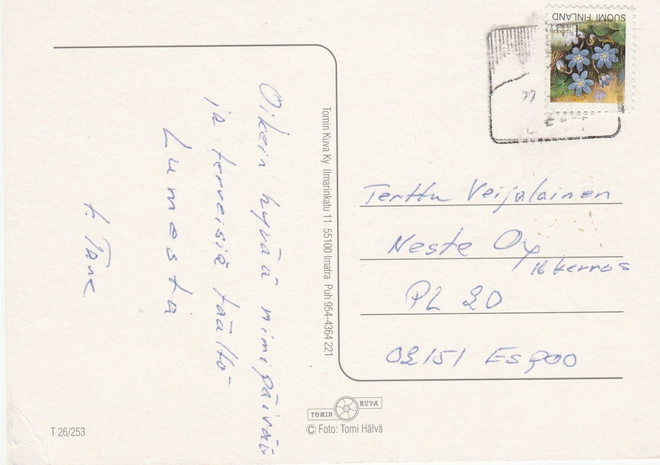 Oikein hyvää nimipäivää
ja terveisiä täältä
Lumesta
t. Tane
Tomin Kuva Ky Ilmarinkatu 11 55100 Imatra Puh 954-4364 221
SUOMI FINLAND
1
Terttu Veijalainen
Neste Oy
16 kerros
PL 20
02151 Espoo
TOMIN KUVA
© Foto: Tomi Hälvä
T 26/253